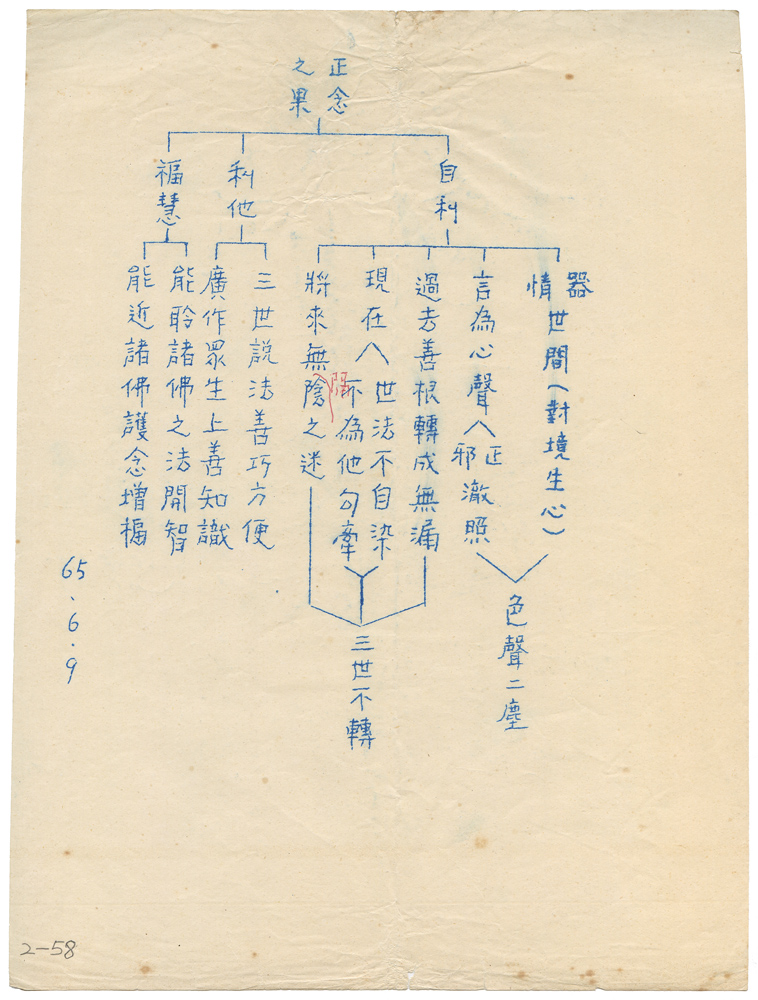 正念之果
自利
利他
福慧
器情世間(對境生心)
言為心聲
正邪
澈照
過去善根轉成無漏
現在八
世法不自染
不為他勾牽
將來無陰之迷
隔
三世說法善巧方便
廣作眾生上善知識
能聆諸佛之法開智
能近諸佛護念增福
色聲二塵
三世不轉
65、6.9
2-58